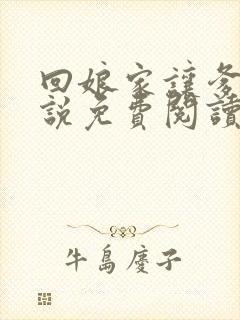 回娘家讓爹
說免費閱讀
牛島慶子